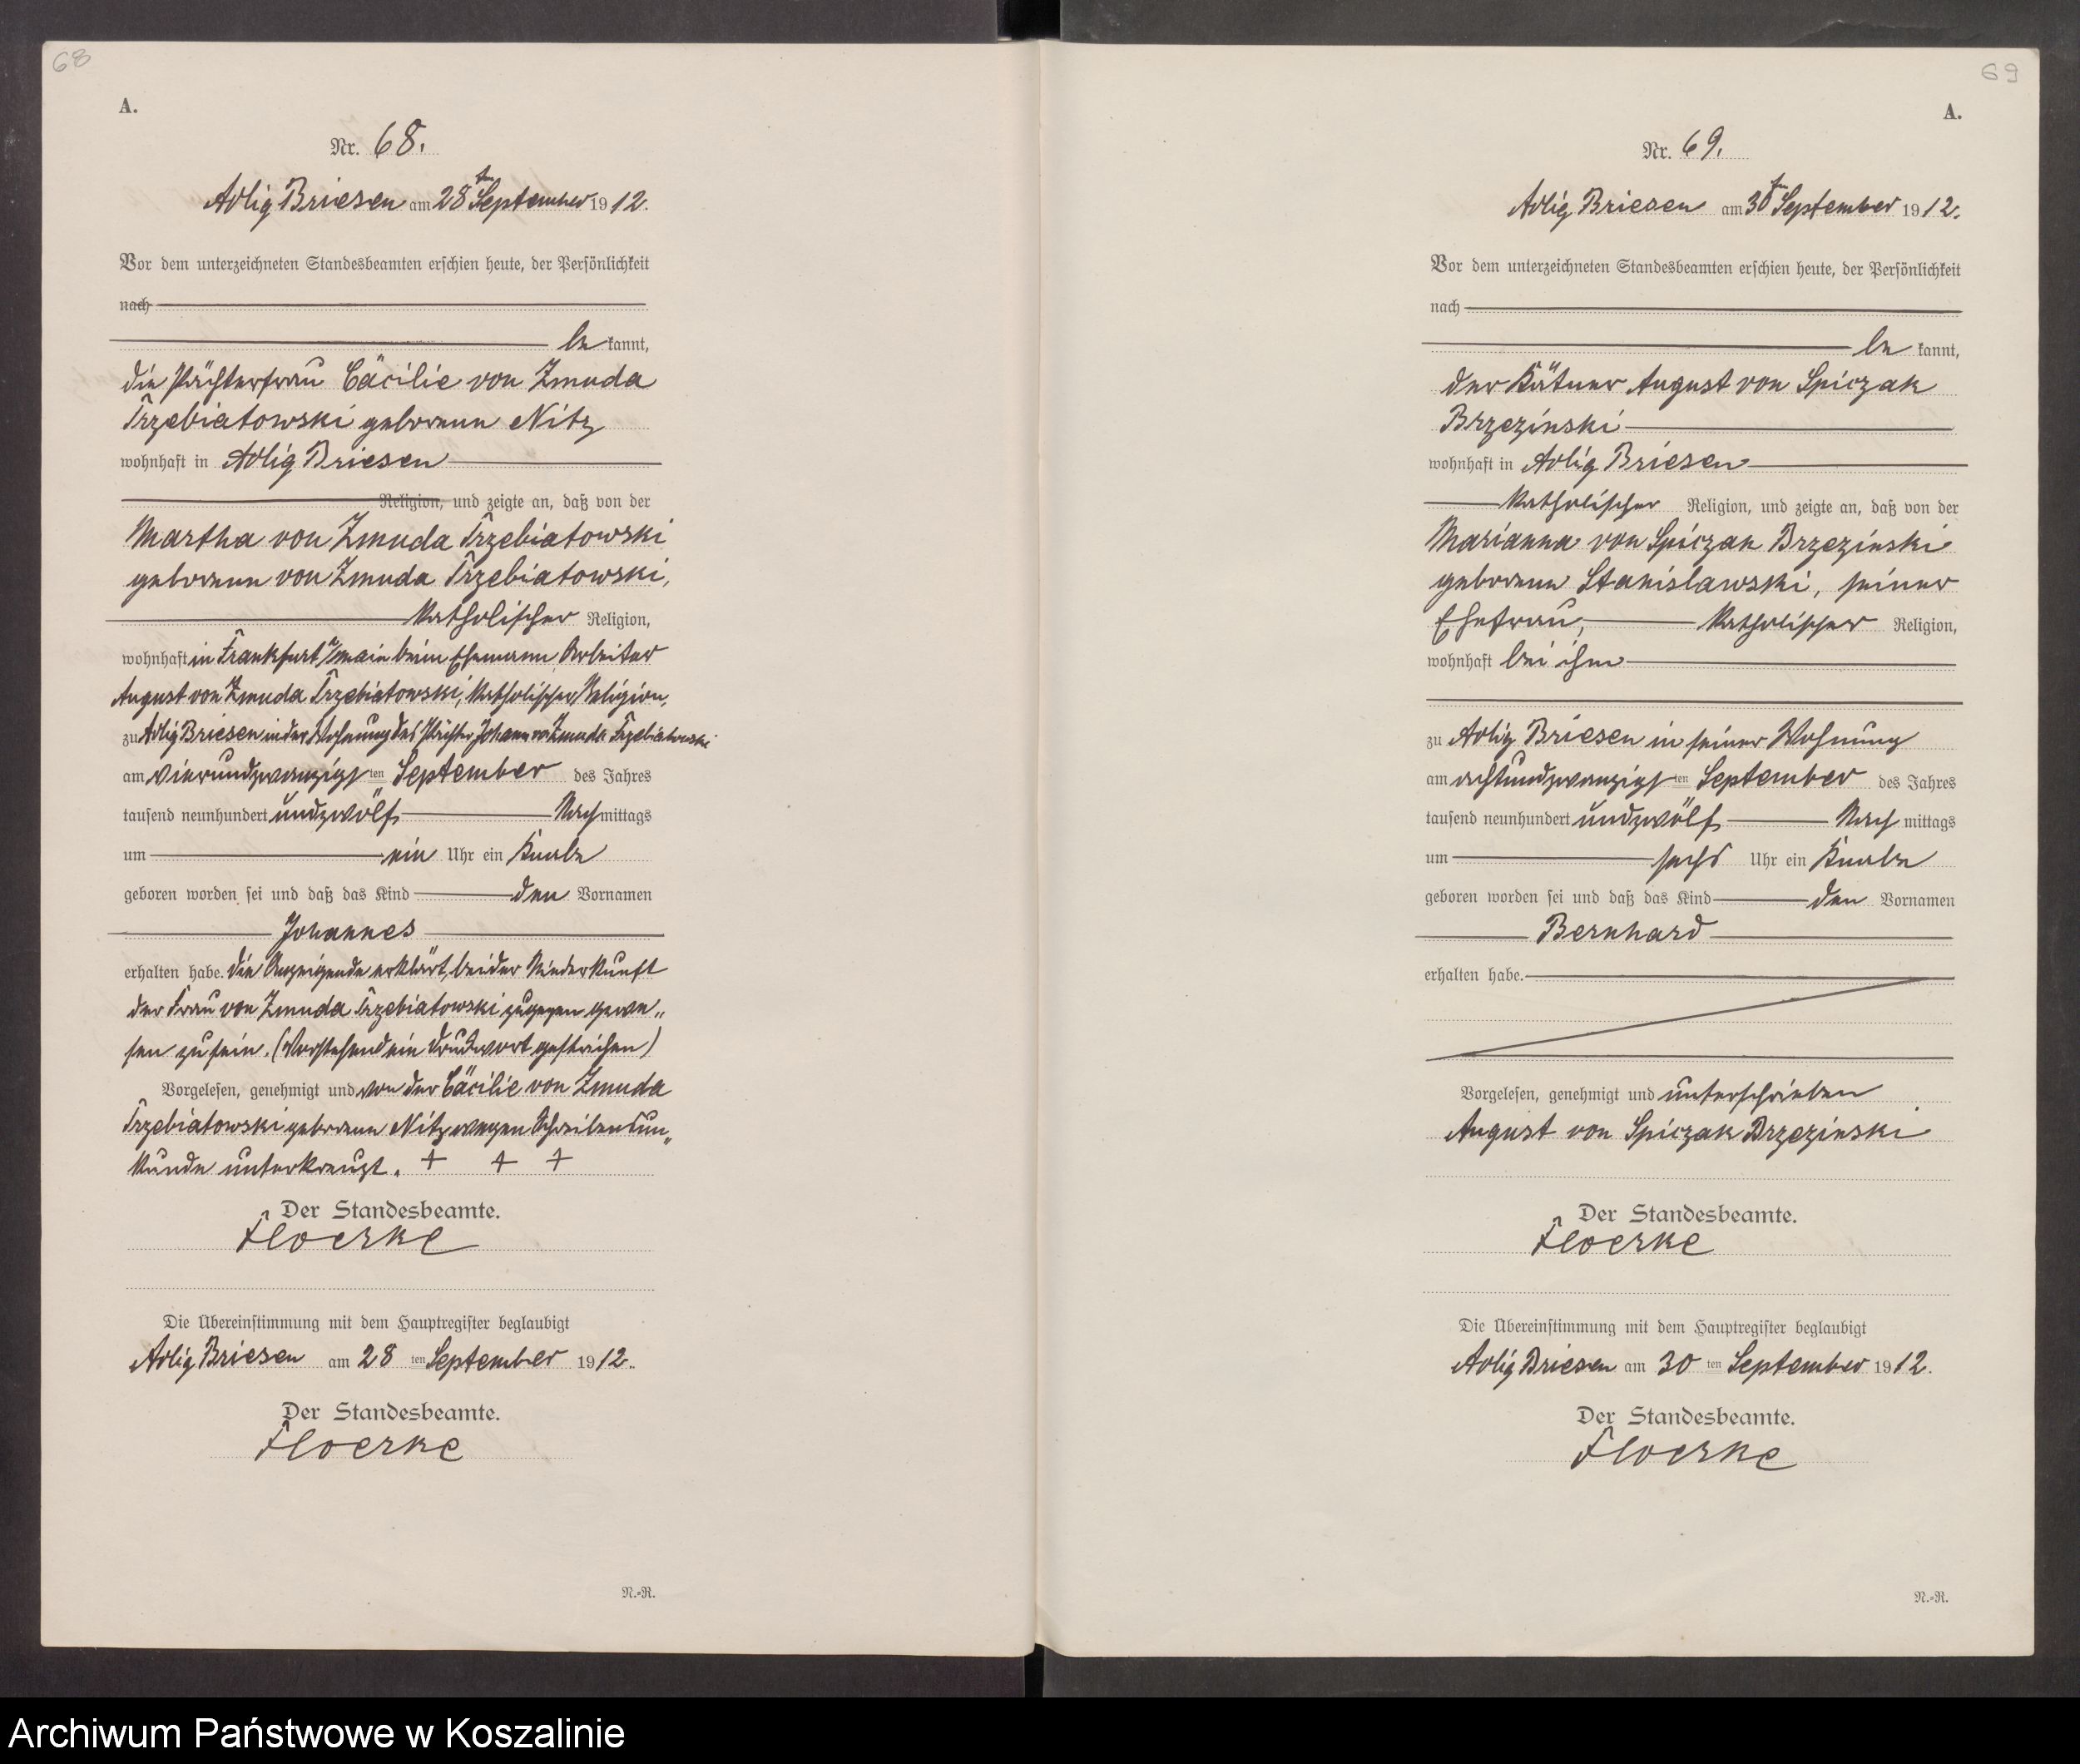 68
A.
Nr. 68.
Adlig Briesen am 28ten September 1912.
Vor dem unterzeichneten Standesbeamten erschien heute, der Persönlichkeit
nach
be kannt,
die Pächterfrau Cäcilie von Zmuda
Trzebiatowski geborene Nitz
wohnhaft in Adlig Briesen
Religion, und zeigte an, daß von der
Martha von Zmuda Trzebiatowski
geborene von Zmuda Trzebiatowski,
katholischer Religion,
wohnhaft in Frankfurt a/main beim Ehemann Arbeiter
August von Zmuda Trzebiatowski, katholischer Religion,
zu Adlig Briesen in der Wohnung des Pächter Johann von Zmuda Trzebiatowski
am vierundzwanzigsten September des Jahres
tausend neunhundert undzwölf Nachmittags
um ein Uhr ein Knabe
geboren worden sei und daß das Kind den Vornamen
Johannes
erhalten habe. Die Anzeigende erklärt, bei der Niederkunft
der Frau von Zmuda Trzebiatowski zugegen gewe„
sen zu sein. (Vorstehend ein Druckwort gestrichen)
Vorgelesen, genehmigt und von der Cäcilie von Zmuda
Trzebiatowski geborene Nitz wegen Schreibensun„
kunde unterkreuzt. + + +
Der Standesbeamte.
Floerke
Die Übereinstimmung mit dem Hauptregister beglaubigt
Adlig Briesen am 28 ten September 1912.
Der Standesbeamte.
Floerke
N.=R.
69
A.
Nr. 69.
Adlig Briesen am 30ten September 1912.
Vor dem unterzeichneten Standesbeamten erschien heute, der Persönlichkeit
nach
be kannt,
der Kätner August von Spiczak
Brzezinski
wohnhaft in Adlig Briesen
katholischer Religion, und zeigte an, daß von der
Marianna von Spiczak Brzezinski
geborene Stanislawski, seiner
Ehefrau, katholischer Religion,
wohnhaft bei ihm
zu Adlig Briesen in seiner Wohnung
am achtundzwanzigsten September des Jahres
tausend neunhundert undzwölf Nach mittags
um sechs Uhr ein Knabe
geboren worden sei und daß das Kind den Vornamen
Bernhard
erhalten habe.
Vorgelesen, genehmigt und unterschrieben
August von Spiczak Brzezinski
Der Standesbeamte.
Floerke
Die Übereinstimmung mit dem Hauptregister beglaubigt
Adlig Briesen am 30 ten September 1912.
Der Standesbeamte.
Floerke
N.=R.
Archiwum Państwowe w Koszalinie